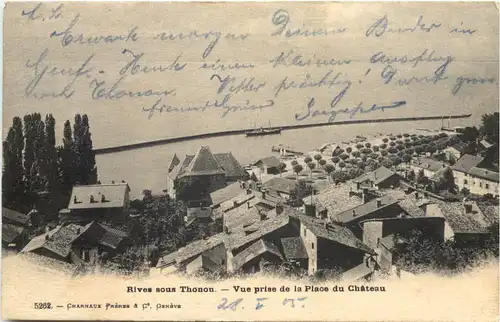 L. L.
Erwarte morgen Deinen Bruder in
Genf. – Heute einen kleinen Ausflug
nach Thonon. Wetter prächtig! Dir u. Gretl
freundl. Gruss
Rives sous Thonon. — Vue prise de la Place du Château
5262. — CHARNAUX FRÈRES & Cº, GENÈVE
28. V 05.